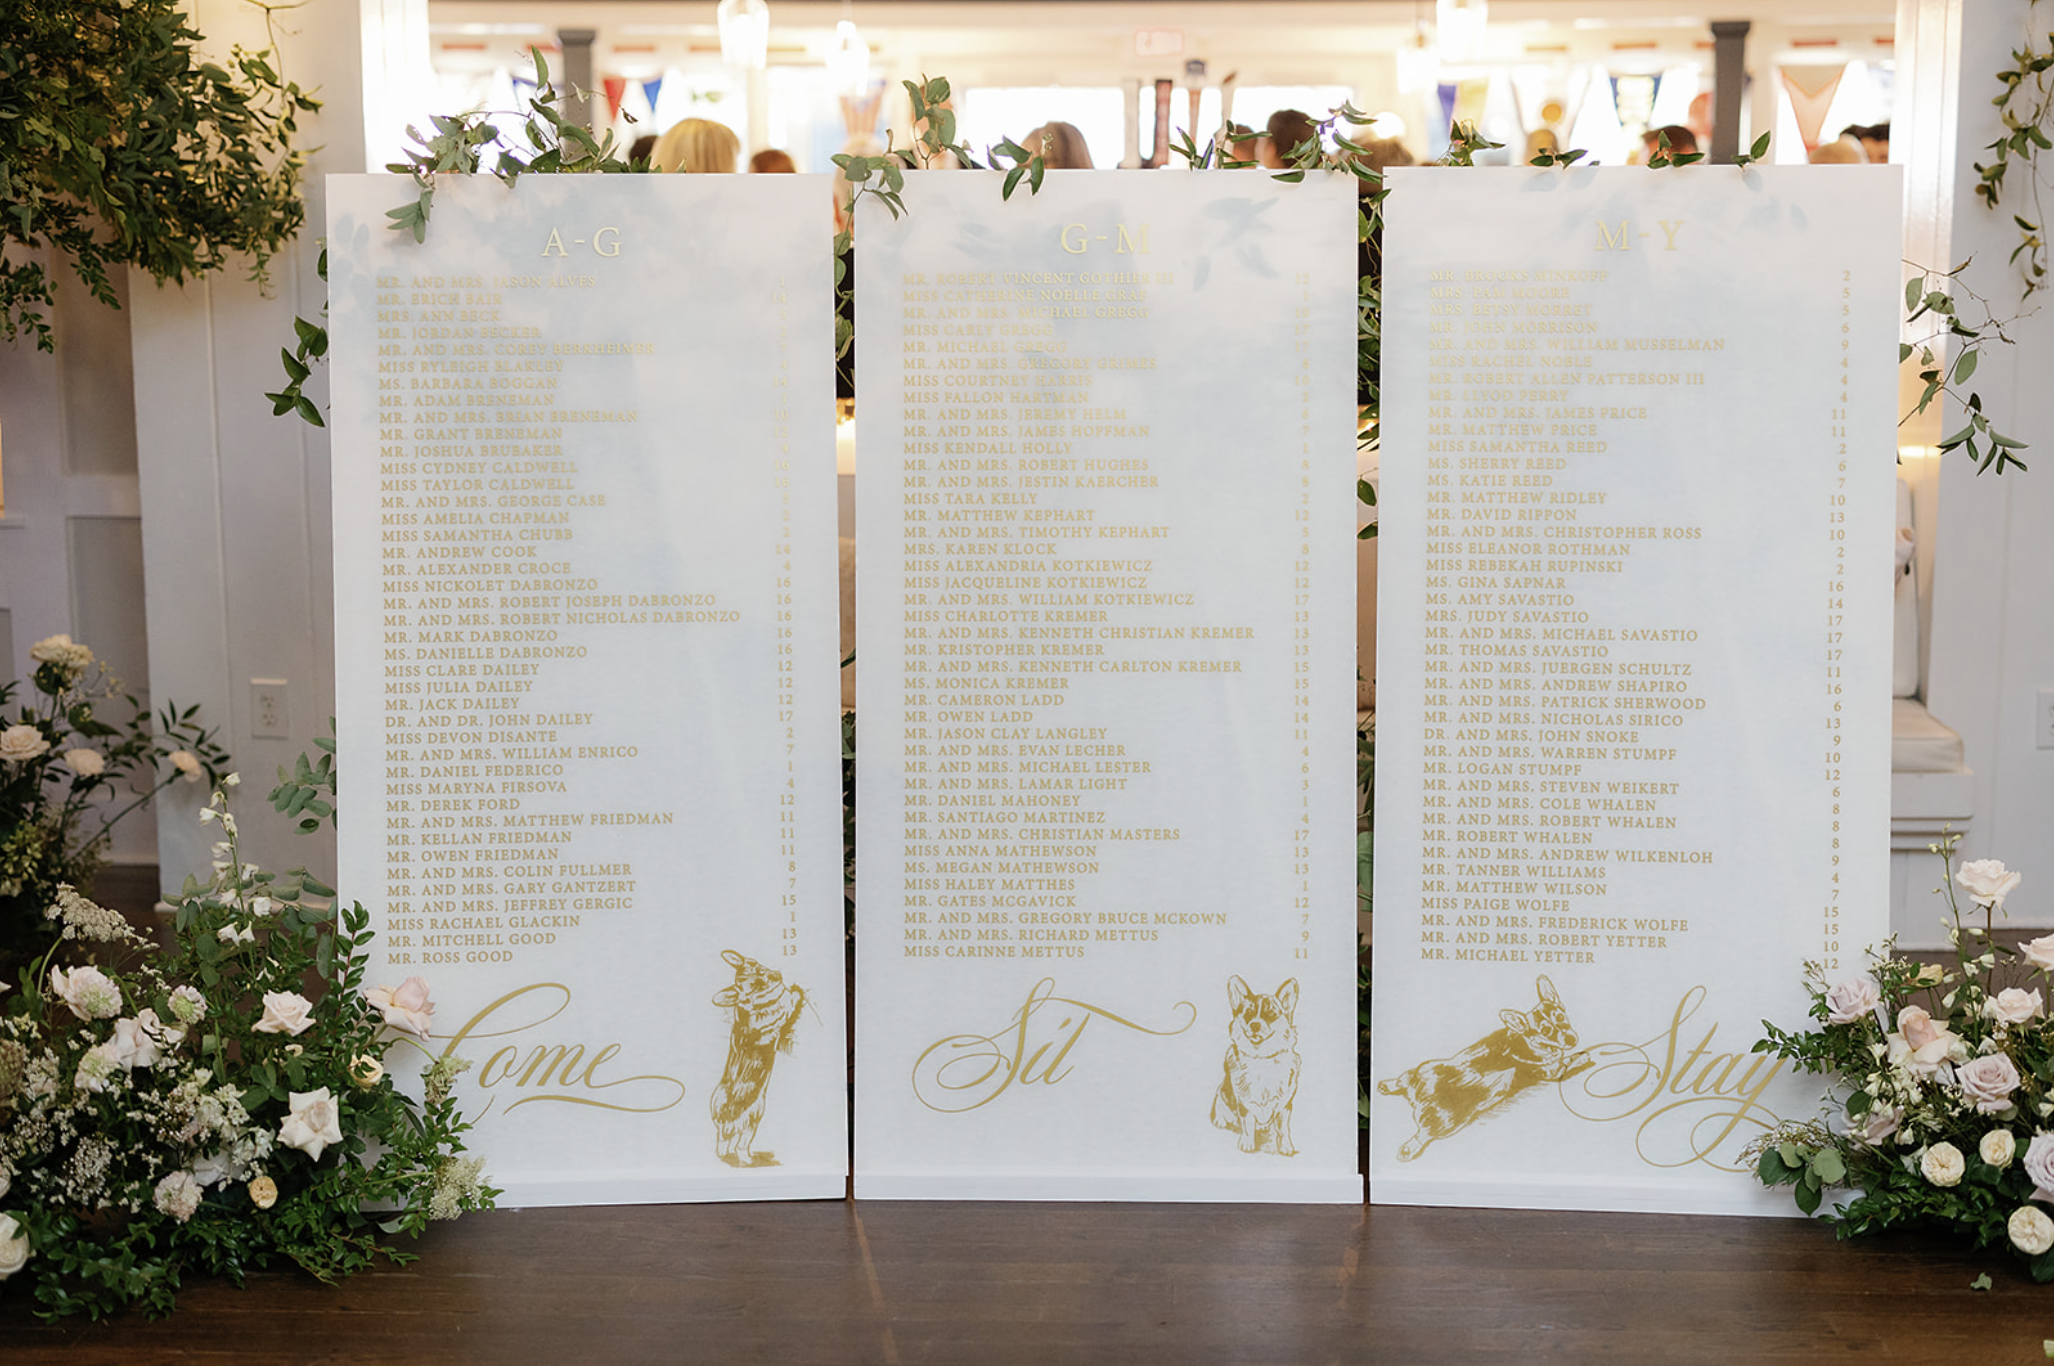 A-G
MR. AND MRS. JASON ALVES 1
MR. ERICH BAIR 14
MRS. ANN BECK
MR. JORDAN BECKER
MR. AND MRS. COREY BERKHEIMER
MISS RYLEIGH BLAKLEY
MS. BARBARA BOGGAN
MR. ADAM BRENEMAN
MR. AND MRS. BRIAN BRENEMAN
MR. GRANT BRENEMAN
MR. JOSHUA BRUBAKER
MISS CYDNEY CALDWELL
MISS TAYLOR CALDWELL
MR. AND MRS. GEORGE CASE
MISS AMELIA CHAPMAN
MISS SAMANTHA CHUBB 2
MR. ANDREW COOK 14
MR. ALEXANDER CROCE 4
MISS NICKOLET DABRONZO 16
MR. AND MRS. ROBERT JOSEPH DABRONZO 16
MR. AND MRS. ROBERT NICHOLAS DABRONZO 16
MR. MARK DABRONZO 16
MS. DANIELLE DABRONZO 16
MISS CLARE DAILEY 12
MISS JULIA DAILEY 12
MR. JACK DAILEY 12
DR. AND DR. JOHN DAILEY 17
MISS DEVON DISANTE 2
MR. AND MRS. WILLIAM ENRICO 7
MR. DANIEL FEDERICO 1
MISS MARYNA FIRSOVA 4
MR. DEREK FORD 12
MR. AND MRS. MATTHEW FRIEDMAN 11
MR. KELLAN FRIEDMAN 11
MR. OWEN FRIEDMAN 11
MR. AND MRS. COLIN FULLMER 8
MR. AND MRS. GARY GANTZERT 7
MR. AND MRS. JEFFREY GERGIC 15
MISS RACHAEL GLACKIN 1
MR. MITCHELL GOOD 13
MR. ROSS GOOD 13
Come
G-M
MR. ROBERT VINCENT GOTHIER III 12
MISS CATHERINE NOELLE GRAF
MR. AND MRS. MICHAEL GREGG
MISS CAREY GREGG 17
MR. MICHAEL GREGG 17
MR. AND MRS. GREGORY GRIMES
MISS COURTNEY HARRIS
MISS FALLON HARTMAN
MR. AND MRS. JEREMY HELM 6
MR. AND MRS. JAMES HOFFMAN 7
MISS KENDALL HOLLY 1
MR. AND MRS. ROBERT HUGHES 8
MR. AND MRS. JESTIN KAERCHER 8
MISS TARA KELLY 2
MR. MATTHEW KEPHART 12
MR. AND MRS. TIMOTHY KEPHART 5
MRS. KAREN KLOCK 8
MISS ALEXANDRIA KOTKIEWICZ 12
MISS JACQUELINE KOTKIEWICZ 12
MR. AND MRS. WILLIAM KOTKIEWICZ 17
MISS CHARLOTTE KREMER 13
MR. AND MRS. KENNETH CHRISTIAN KREMER 13
MR. KRISTOPHER KREMER 13
MR. AND MRS. KENNETH CARLTON KREMER 15
MS. MONICA KREMER 15
MR. CAMERON LADD 14
MR. OWEN LADD 14
MR. JASON CLAY LANGLEY 11
MR. AND MRS. EVAN LECHER 4
MR. AND MRS. MICHAEL LESTER 6
MR. AND MRS. LAMAR LIGHT 3
MR. DANIEL MAHONEY 1
MR. SANTIAGO MARTINEZ 4
MR. AND MRS. CHRISTIAN MASTERS 17
MISS ANNA MATHEWSON 13
MS. MEGAN MATHEWSON 13
MISS HALEY MATTHES 1
MR. GATES MCGAVICK 12
MR. AND MRS. GREGORY BRUCE MCKOWN 7
MR. AND MRS. RICHARD METTUS 9
MISS CARINNE METTUS 11
Sit
M-Y
MR. BROOKS MINKOFF 2
MRS. PAM MOORE 5
MRS. BETSY MORRET 5
MR. JOHN MORRISON 6
MR. AND MRS. WILLIAM MUSSELMAN 9
MISS RACHEL NOBLE 4
MR. ROBERT ALLEN PATTERSON III 4
MR. LLYOD PERRY 4
MR. AND MRS. JAMES PRICE 11
MR. MATTHEW PRICE 11
MISS SAMANTHA REED 2
MS. SHERRY REED 6
MS. KATIE REED 7
MR. MATTHEW RIDLEY 10
MR. DAVID RIPPON 13
MR. AND MRS. CHRISTOPHER ROSS 10
MISS ELEANOR ROTHMAN 2
MISS REBEKAH RUPINSKI 2
MS. GINA SAPNAR 16
MS. AMY SAVASTIO 14
MRS. JUDY SAVASTIO 17
MR. AND MRS. MICHAEL SAVASTIO 17
MR. THOMAS SAVASTIO 17
MR. AND MRS. JUERGEN SCHULTZ 11
MR. AND MRS. ANDREW SHAPIRO 16
MR. AND MRS. PATRICK SHERWOOD 6
MR. AND MRS. NICHOLAS SIRICO 13
DR. AND MRS. JOHN SNOKE 9
MR. AND MRS. WARREN STUMPF 10
MR. LOGAN STUMPF 12
MR. AND MRS. STEVEN WEIKERT 6
MR. AND MRS. COLE WHALEN 8
MR. AND MRS. ROBERT WHALEN 8
MR. ROBERT WHALEN 8
MR. AND MRS. ANDREW WILKENLOH 9
MR. TANNER WILLIAMS 4
MR. MATTHEW WILSON 7
MISS PAIGE WOLFE 15
MR. AND MRS. FREDERICK WOLFE 15
MR. AND MRS. ROBERT YETTER 10
MR. MICHAEL YETTER 12
Stay